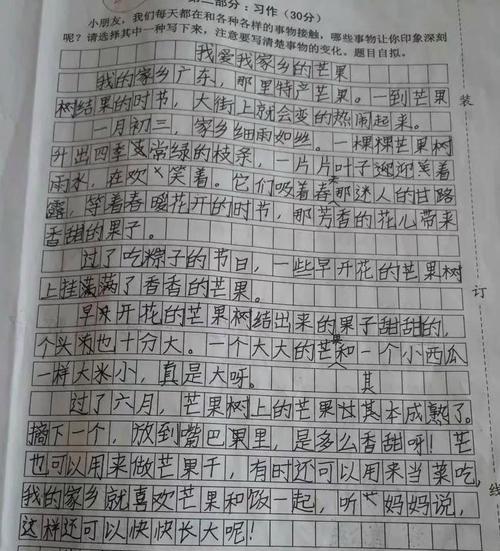 第二部分：习作（30分）
小朋友，我们每天都在和各种各样的事物接触，哪些事物让你印象深刻
呢？请选择其中一种写下来，注意要写清楚事物的变化。题目自拟。
我爱我家乡的芒果
我的家乡广东，那里特产芒果。一到芒果
树结果的时节，大街上就会变的热闹起来。
一月初三，家乡细雨如丝。一棵棵芒果树
升出四季常绿的枝条，一片片叶子迎迎着
雨水，在欢笑着。它们吸着春那迷人的甘路
露，等着春暖花开的时节，那芳香的花儿带来
香甜的果子。
过了吃粽子的节日，一些早开花的芒果树
上挂满满了香香的芒果。
早开花的芒果树结出来的果子甜甜的，
个头也十分大。一个大大的芒果和一个小西瓜
一样大小，真是大呀。
其
过了六月，芒果树上的芒果本成熟了。
摘下一个，放到嘴巴里，是多么香甜呀！芒
也可以用来做芒果干，有时还可以用来当菜吃，
我的家乡就喜欢芒果和饭一起，听妈妈说，
这样还可以快快长大呢！
装
订
线